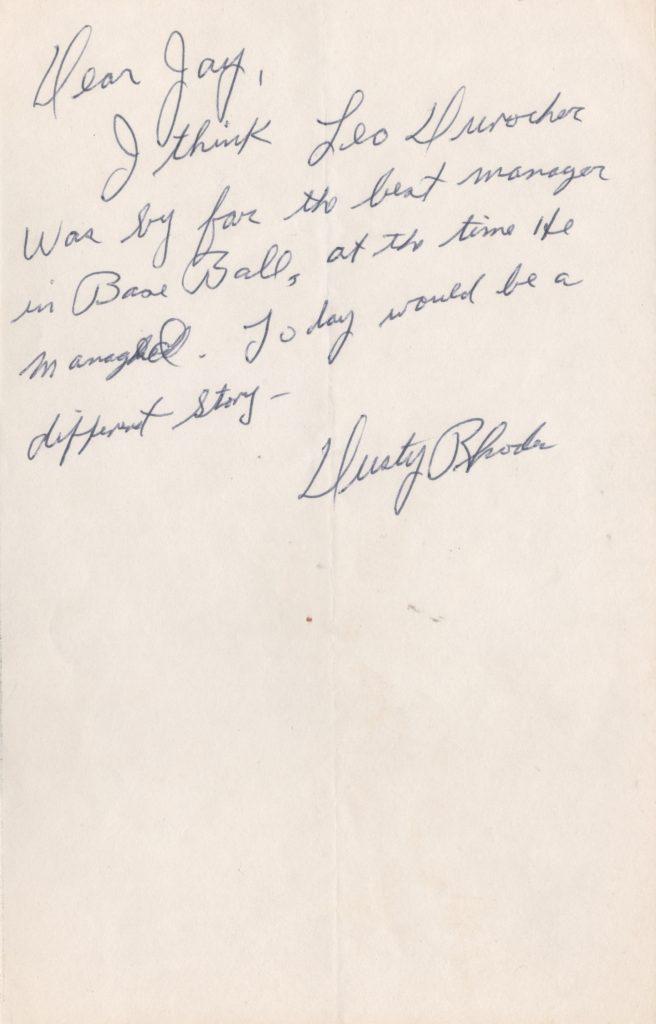 Dear Jay,
I think Leo Durocher
Was by far the best manager
in Base Ball, at the time He
managed. Today would be a
different story -
Dusty Rhodes